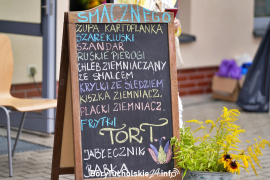 SMACZNEGO
ZUPA KARTOFLANKA
SZAREKLUSKI
SZANDAR
RUSKIE PIEROGI
CHLEB ZIEMNIACZANY
ZE SMALCEM
KRYLKI ZE ŚLEDZIEM
KISZKA ZIEMNIACZ.
PLACKI ZIEMNIACZ.
FRYTKI
TORT
JABŁECZNIK
BABKA
Borytucholskie24.info